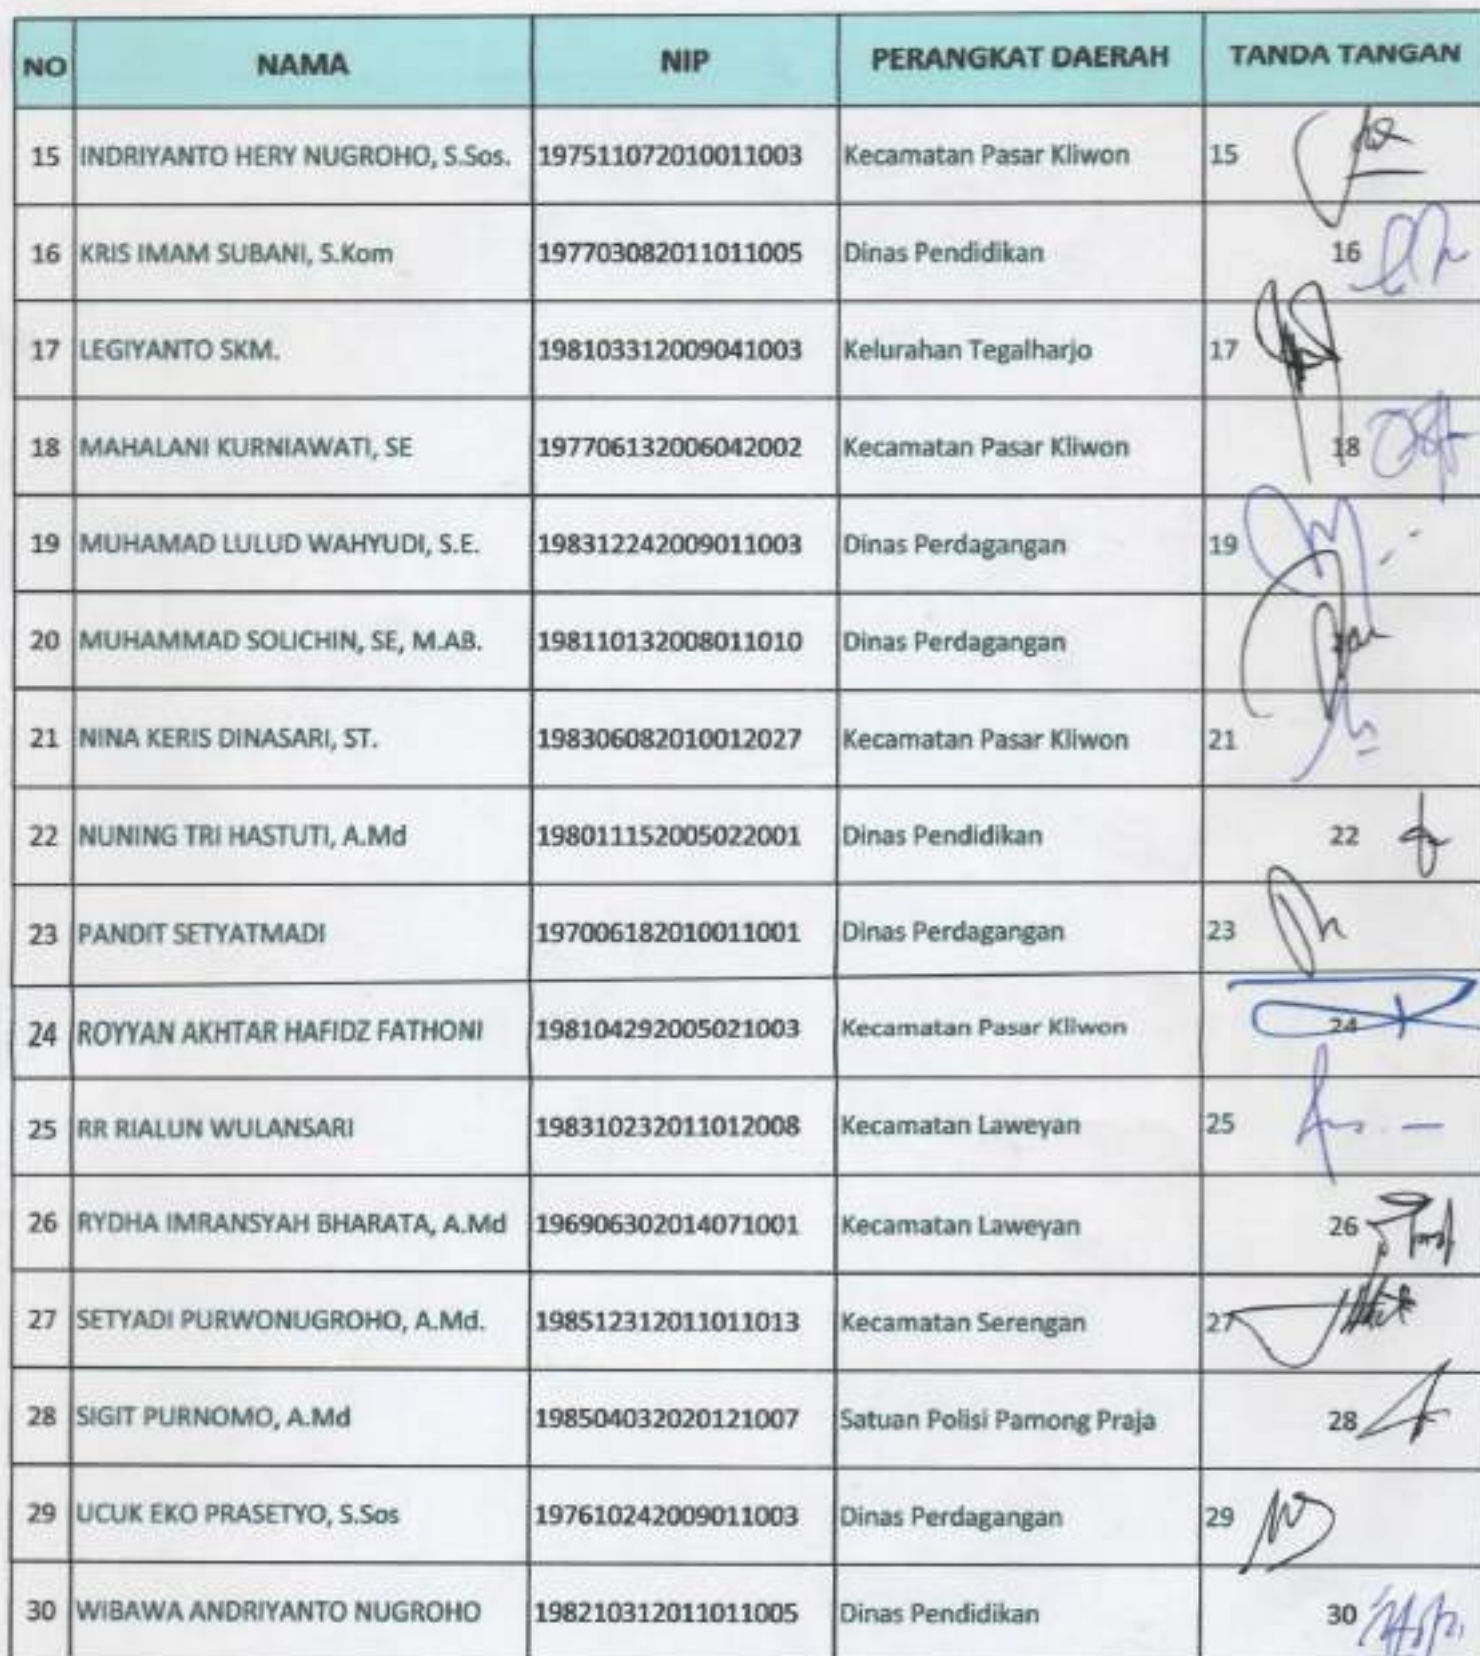 NO NAMA NIP PERANGKAT DAERAH TANDA TANGAN
15 INDRIYANTO HERY NUGROHO, S.Sos. 197511072010011003 Kecamatan Pasar Kliwon 15
16 KRIS IMAM SUBANI, S.Kom 197703082011011005 Dinas Pendidikan 16
17 LEGIYANTO SKM. 198103312009041003 Kelurahan Tegalharjo 17
18 MAHALANI KURNIAWATI, SE 197706132006042002 Kecamatan Pasar Kliwon 18
19 MUHAMAD LULUD WAHYUDI, S.E. 198312242009011003 Dinas Perdagangan 19
20 MUHAMMAD SOLICHIN, SE, M.AB. 198110132008011010 Dinas Perdagangan
21 NINA KERIS DINASARI, ST. 198306082010012027 Kecamatan Pasar Kliwon 21
22 NUNING TRI HASTUTI, A.Md 198011152005022001 Dinas Pendidikan 22
23 PANDIT SETYATMADI 197006182010011001 Dinas Perdagangan 23
24 ROYYAN AKHTAR HAFIDZ FATHONI 198104292005021003 Kecamatan Pasar Kliwon 24
25 RR RIALUN WULANSARI 198310232011012008 Kecamatan Laweyan 25
26 RYDHA IMRANSYAH BHARATA, A.Md 196906302014071001 Kecamatan Laweyan 26
27 SETYADI PURWONUGROHO, A.Md. 198512312011011013 Kecamatan Serengan 27
28 SIGIT PURNOMO, A.Md 198504032020121007 Satuan Polisi Pamong Praja 28
29 UCUK EKO PRASETYO, S.Sos 197610242009011003 Dinas Perdagangan 29
30 WIBAWA ANDRIYANTO NUGROHO 198210312011011005 Dinas Pendidikan 30